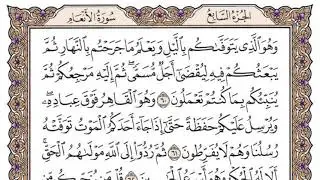 الجزء السابع سورة الأنعام
وَهُوَ ٱلَّذِى يَتَوَفَّىٰكُم بِٱلَّيْلِ وَيَعْلَمُ مَا جَرَحْتُم بِٱلنَّهَارِ ثُمَّ
يَبْعَثُكُمْ فِيهِ لِيُقْضَىٰٓ أَجَلٌ مُّسَمًّى ثُمَّ إِلَيْهِ مَرْجِعُكُمْ ثُمَّ
يُنَبِّئُكُم بِمَا كُنتُمْ تَعْمَلُونَ ٦٠ وَهُوَ ٱلْقَاهِرُ فَوْقَ عِبَادِهِۦ
وَيُرْسِلُ عَلَيْكُمْ حَفَظَةً حَتَّىٰٓ إِذَا جَآءَ أَحَدَكُمُ ٱلْمَوْتُ تَوَفَّتْهُ
رُسُلُنَا وَهُمْ لَا يُفَرِّطُونَ ٦١ ثُمَّ رُدُّوٓا۟ إِلَى ٱللَّهِ مَوْلَىٰهُمُ ٱلْحَقِّ
أَلَا لَهُ ٱلْحُكْمُ وَهُوَ أَسْرَعُ قُلْ مَن يُنَجِّيكُم